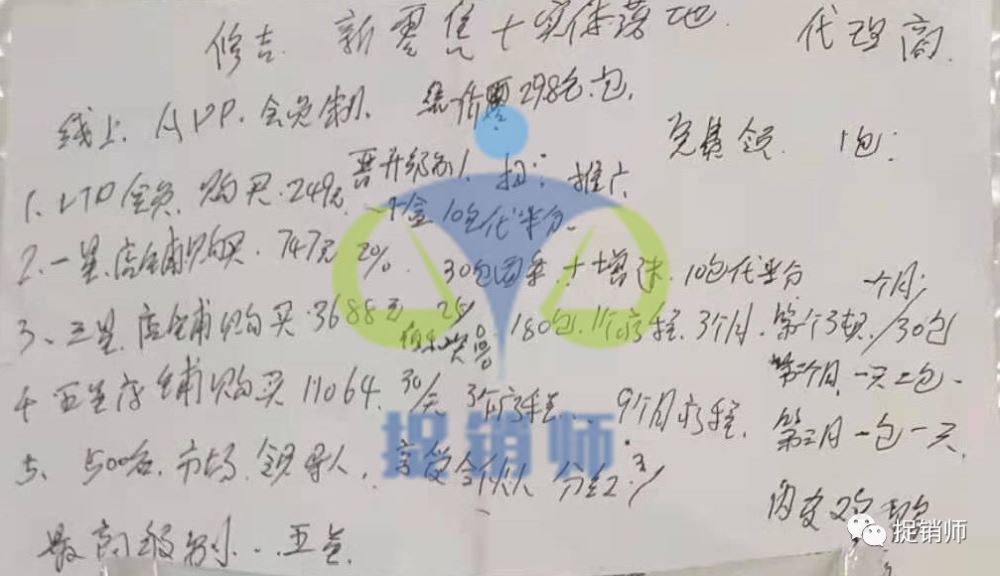 修吉 新零售十实体落地 代理商
线上 APP 会员制 统价票298包.包
免费领 1包:
晋升级别 扭: 推广
1、VIP会员 购买.249元 一个盒10包代半分
2、一星店铺购买.747元 20% 30包固本+增 10包代半分 一个月:
3、三星店铺购买.3688元 25% 180包.1个疗程 3个月.第个3/30包
第二个月一天二包
4 五星店铺购买11064 30% 3个疗程 9个月疗程
第三月一包一天
5、500名.市场领导人,享受合伙人分红3%
内交
最高级别..五星
捉销师
捉销师